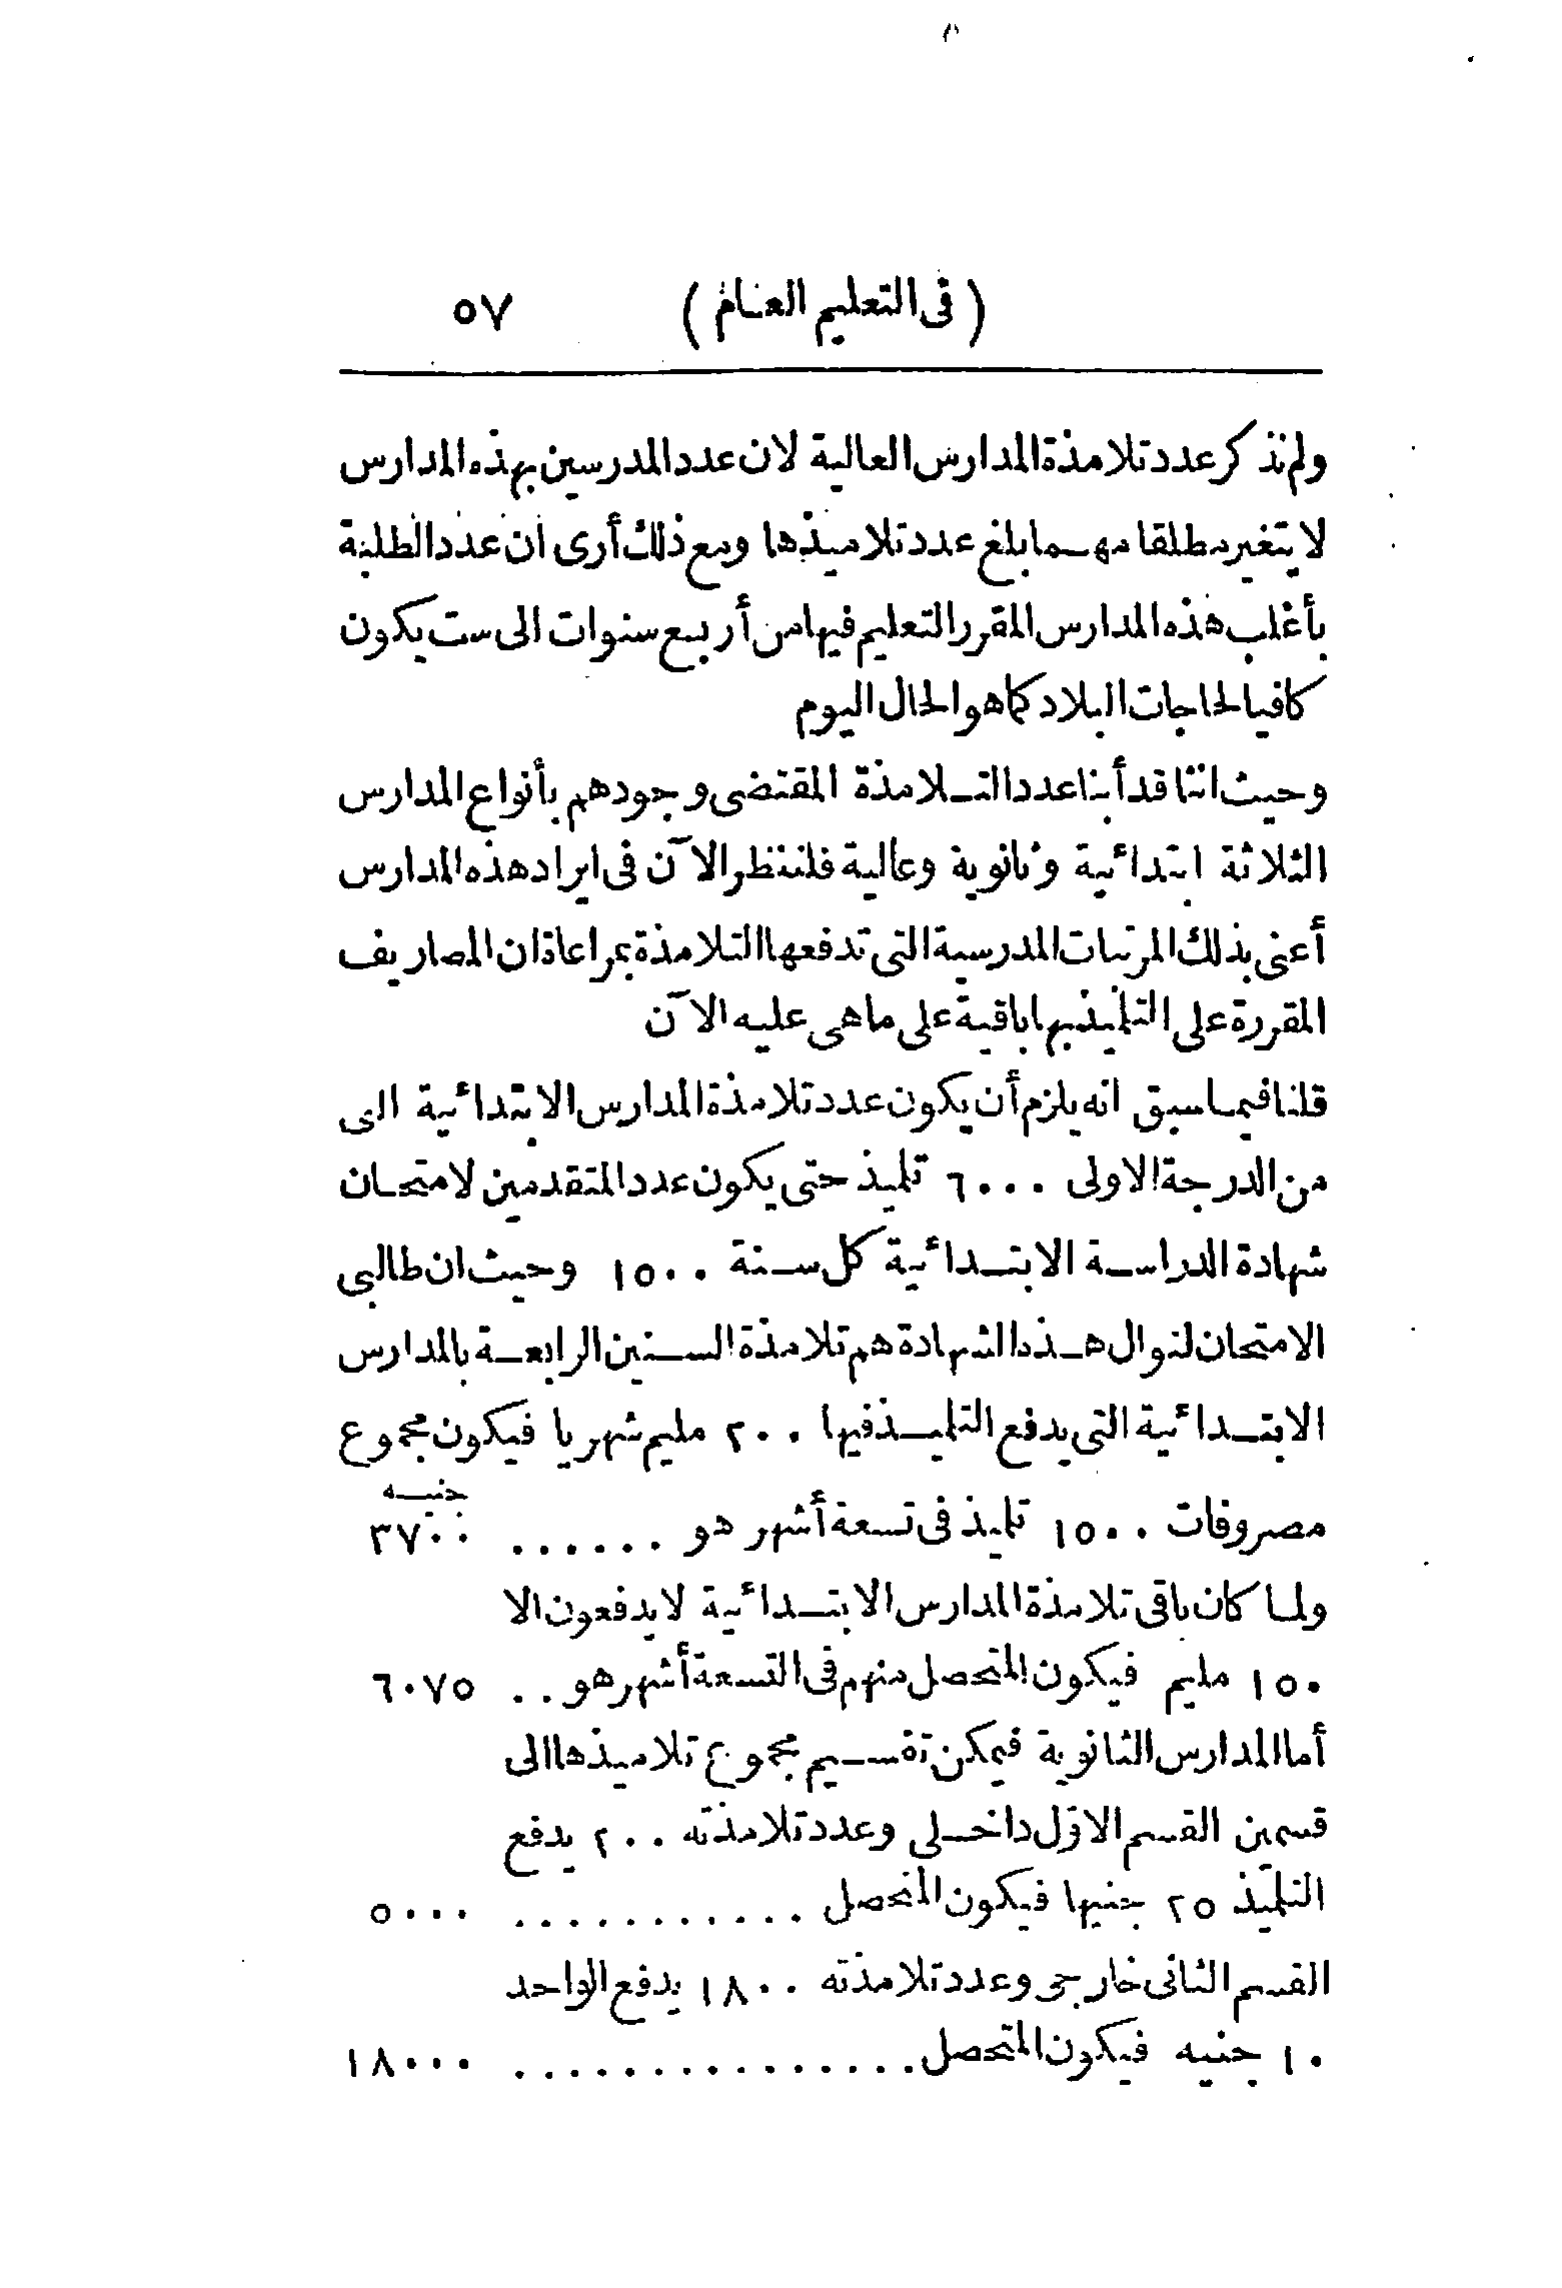 ( فى التعليم العام ) ٥٧
ولم نذكر عدد تلامذة المدارس العالية لان عدد المدرسين بهذه المدارس
لا يتغير مطلقا مهما بلغ عدد تلاميذها ومع ذلك أرى ان عدد الطلبة
بأغلب هذه المدارس المقرر التعليم فيها من أربع سنوات الى ست يكون
كافيا لحاجات البلاد كما هو الحال اليوم
وحيث اننا قد أبنا عدد التلامذة المقتضى وجودهم بأنواع المدارس
الثلاثة ابتدائية وثانوية وعالية فلننظر الآن فى ايراد هذه المدارس
أعنى بذلك المرتبات المدرسية التى تدفعها التلامذة بمراعاة ان المصاريف
المقررة على التلميذ بها باقية على ما هى عليه الآن
قلنا فيما سبق انه يلزم أن يكون عدد تلامذة المدارس الابتدائية التى
من الدرجة الاولى ٦٠٠٠ تلميذ حتى يكون عدد المتقدمين لامتحان
شهادة الدراسة الابتدائية كل سنة ١٥٠٠ وحيث ان طالبى
الامتحان لنوال هذه الشهادة هم تلامذة السنين الرابعة بالمدارس
الابتدائية التى يدفع التلميذ فيها ٢٠٠ مليم شهريا فيكون مجموع
جنيه
مصروفات ١٥٠٠ تلميذ فى تسعة أشهر هو ...... ٣٧٠٠
ولما كان باقى تلامذة المدارس الابتدائية لا يدفعون الا
١٥٠ مليم فيكون المتحصل منهم فى التسعة أشهر هو .. ٦٠٧٥
أما المدارس الثانوية فيمكن تقسيم مجموع تلاميذها الى
قسمين القسم الاوّل داخلى وعدد تلامذته ٢٠٠ يدفع
التلميذ ٢٥ جنيها فيكون المتحصل ........... ٥٠٠٠
القسم الثانى خارجى وعدد تلامذته ١٨٠٠ يدفع الواحد
١٠ جنيه فيكون المتحصل ............... ١٨٠٠٠